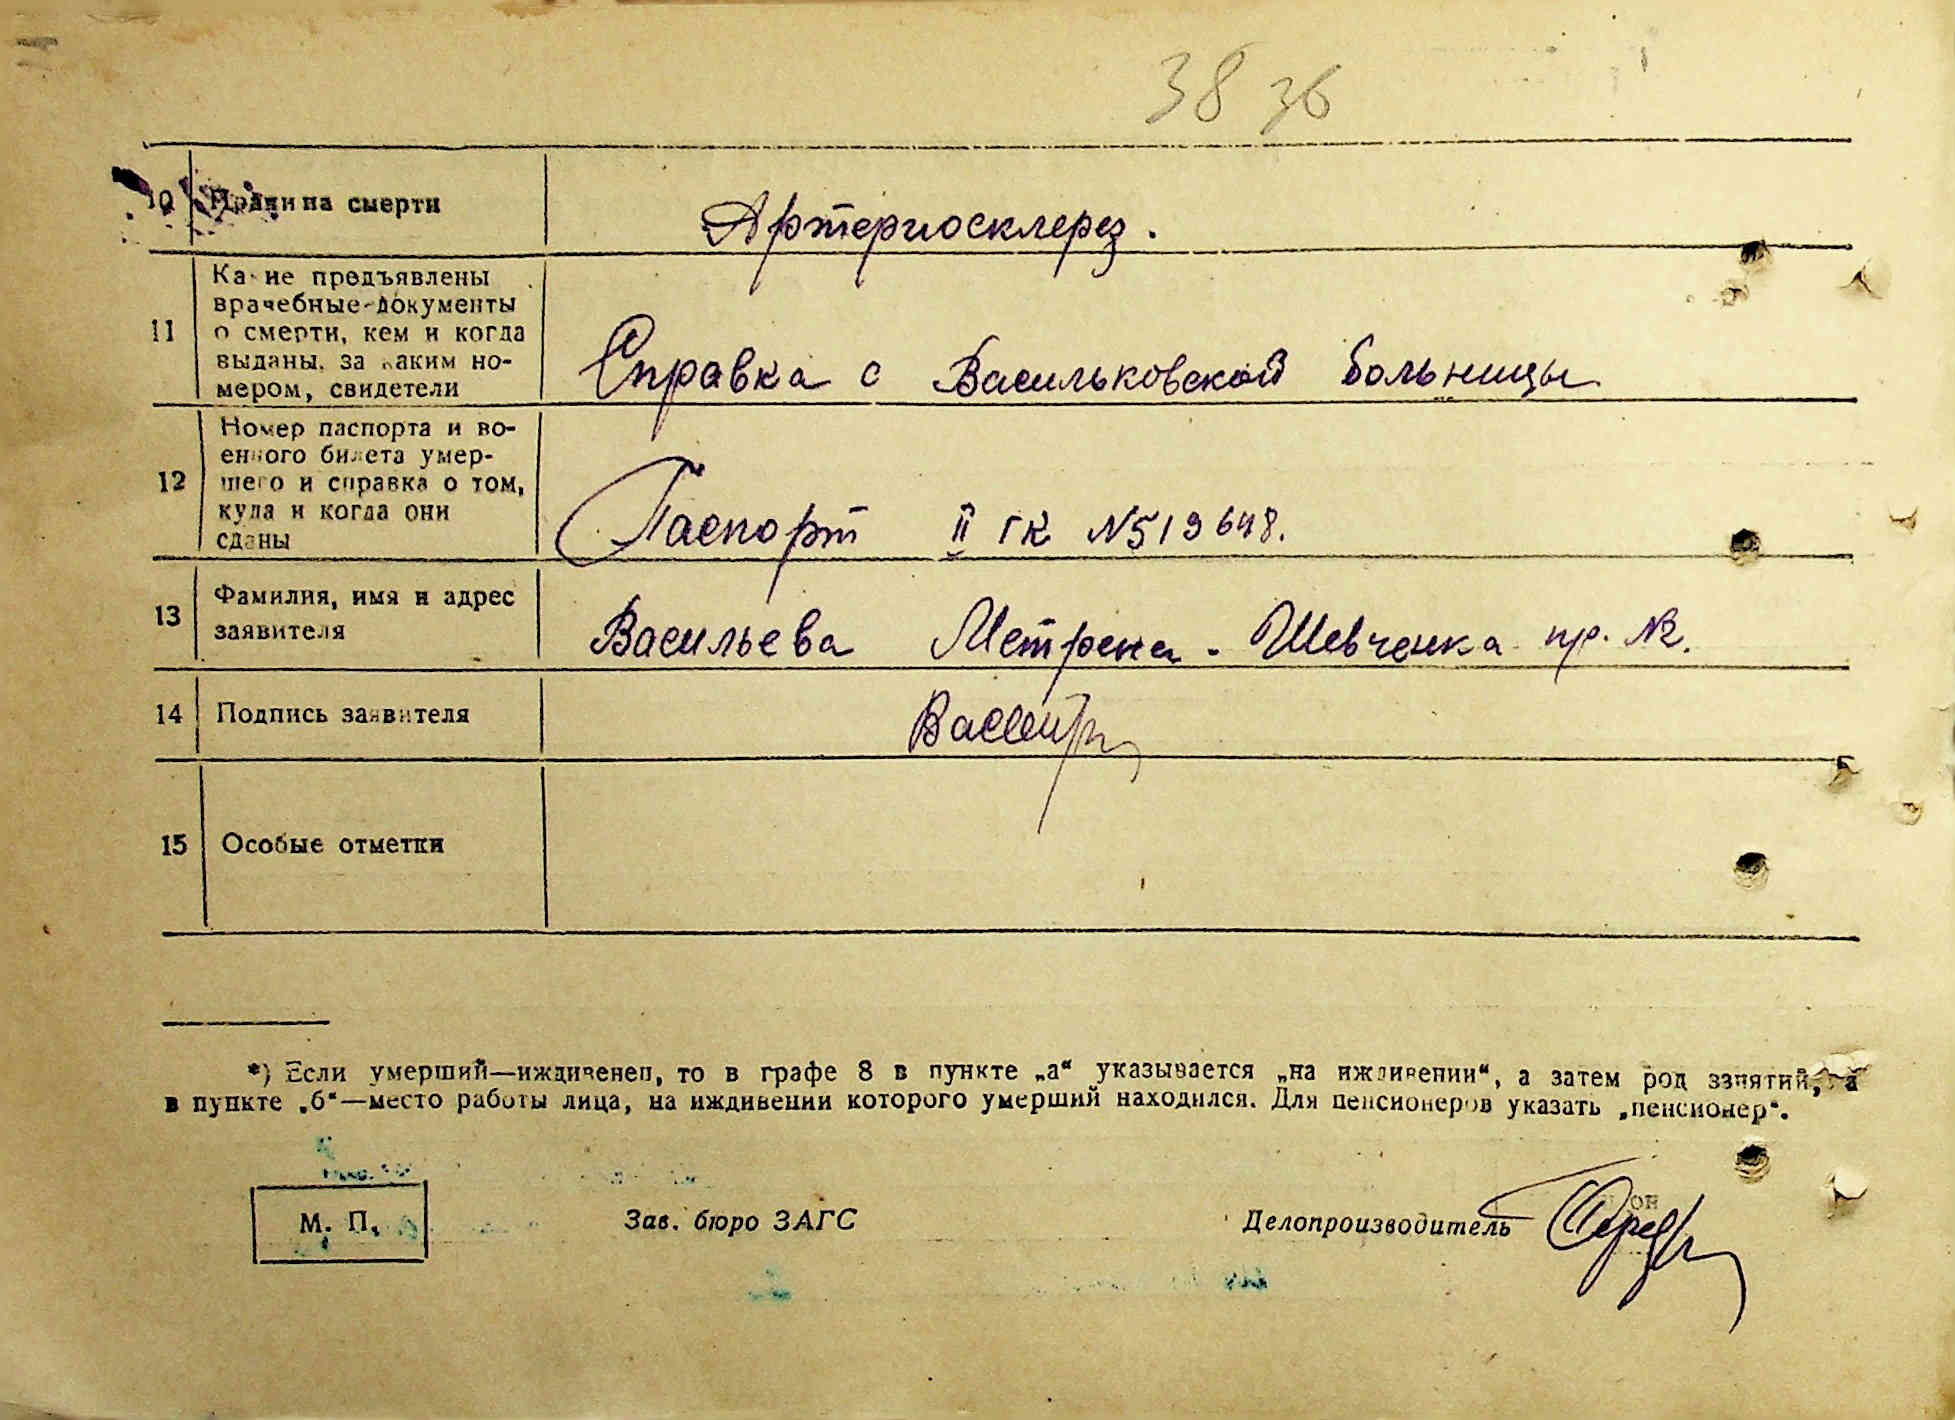 38 36
10 Причина смерти Артериосклерез.
11 Какие предъявлены
врачебные документы
о смерти, кем и когда
выданы, за каким но-
мером, свидетели
Справка с Васильковской больницы
12 Номер паспорта и во-
енного билета умер-
шего и справка о том,
куда и когда они
сданы
Паспорт II ГК №519648.
13 Фамилия, имя и адрес
заявителя
Васильева Метрена - Шевченка пр. №2.
14 Подпись заявителя
15 Особые отметки
*) Если умерший—иждивенец, то в графе 8 в пункте „а“ указывается „на иждивении“, а затем род занятий, а
в пункте „б“—место работы лица, на иждивении которого умерший находился. Для пенсионеров указать „пенсионер“.
М. П. Зав. бюро ЗАГС Делопроизводитель